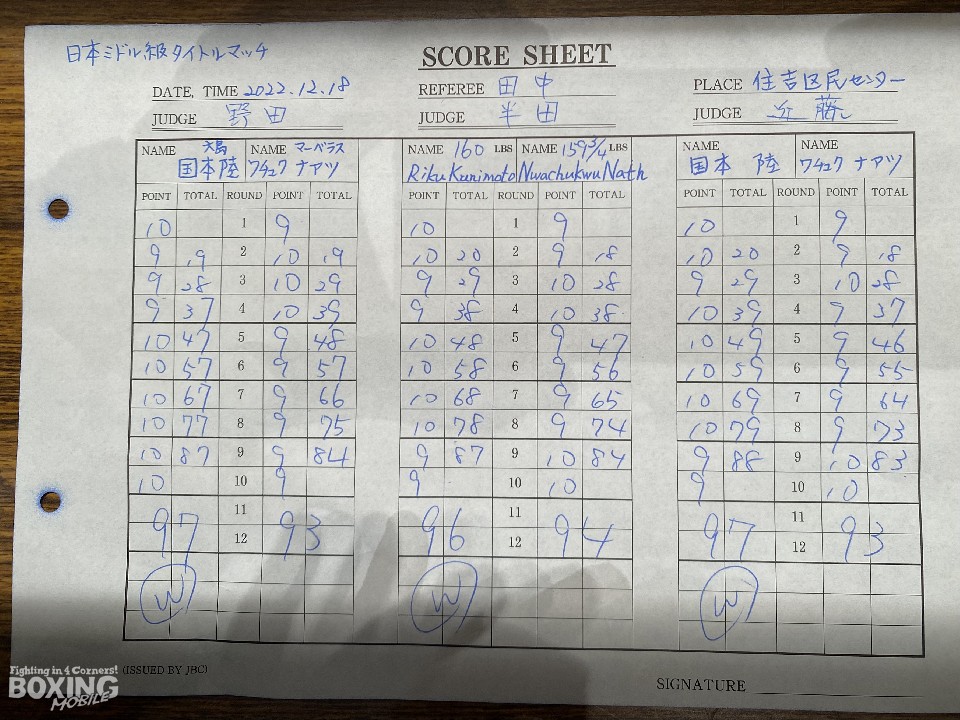 日本ミドル級タイトルマッチ
SCORE SHEET
DATE, TIME 2022.12.18 REFEREE 田中 PLACE 住吉区民センター
JUDGE 野田 JUDGE 半田 JUDGE 近藤
NAME 大島 NAME マーベラス NAME 160 LBS NAME 159 3/4 LBS NAME NAME
国本陸 ワチュク ナアツ Riku Kunimoto Nwachukwu Nath 国本 陸 ワチュク ナアツ
POINT TOTAL ROUND POINT TOTAL POINT TOTAL ROUND POINT TOTAL POINT TOTAL ROUND POINT TOTAL
10 1 9 10 1 9 10 1 9
9 19 2 10 19 10 20 2 9 18 10 20 2 9 18
9 28 3 10 29 9 29 3 10 28 9 29 3 10 28
9 37 4 10 39 9 38 4 10 38 10 39 4 9 37
10 47 5 9 48 10 48 5 9 47 10 49 5 9 46
10 57 6 9 57 10 58 6 9 56 10 59 6 9 55
10 67 7 9 66 10 68 7 9 65 10 69 7 9 64
10 77 8 9 75 10 78 8 9 74 10 79 8 9 73
10 87 9 9 84 9 87 9 10 84 9 88 9 10 83
10 10 9 9 10 10 9 10 10
11 11 11
97 12 93 96 12 94 97 12 93
W W W
(ISSUED BY JBC)
SIGNATURE
Fighting in 4 Corners!
BOXING
MOBILE